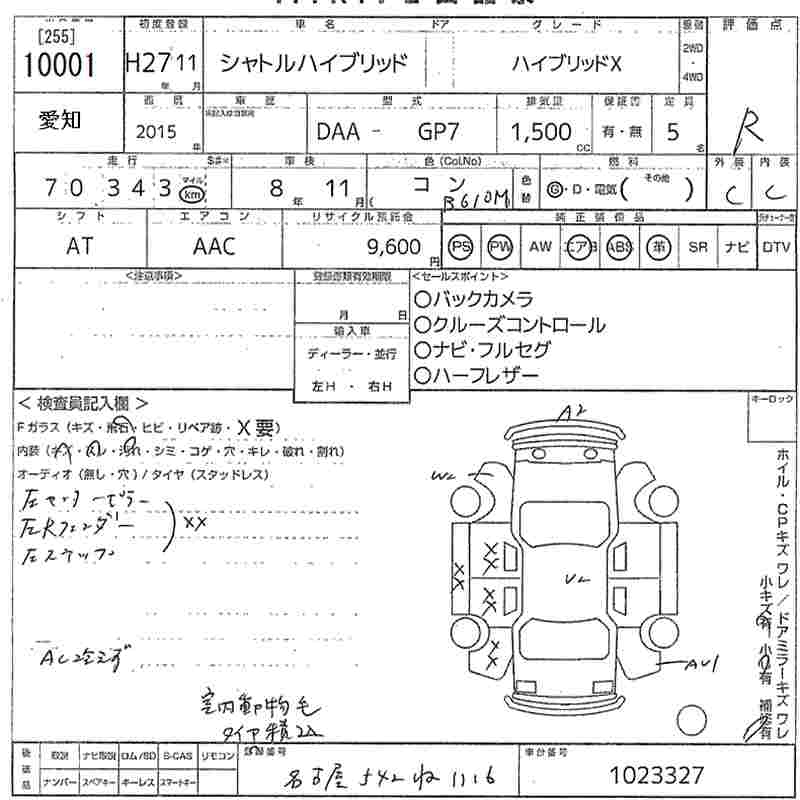 [255]
10001
初度登録
車名
ドア
グレード
評価点
H27 11
年 月
シャトルハイブリッド
ハイブリッドX
2WD
・
4WD
愛知
西暦
車歴
型式
排気量
定員
2015
年
DAA - GP7
1,500
CC
有・無
5
名
R
走行
車検
色(CoLNo)
燃料
外装
内装
70343
マイル
km
8 年 11 月
コン
R610M
色替
G・D・電気( その他 )
C
C
シフト
エアコン
リサイクル預託金
純正装備品
AT
AAC
9,600
円
PS
PW
AW
エアB
ABS
革
SR
ナビ
DTV
<注意事項>
登録書類有効期限
<セールスポイント>
月 日
輸入車
ディーラー・並行
左H ・ 右H
○バックカメラ
○クルーズコントロール
○ナビ・フルセグ
○ハーフレザー
<検査員記入欄>
キーロック
Fガラス(キズ・飛石・ヒビ・リペア跡・X要)
内装(キズ・スレ・汚れ・シミ・コゲ・穴・キレ・破れ・割れ)
オーディオ(無し・穴)/タイヤ(スタッドレス)
左センターピラー
左Rフェンダー
左ステップ
XX
A2
W2
XX
XX
XX
XX
U2
AU1
ホイル・CPキズ ワレ/ドアミラーキズ ワレ
小キズ有 小凹有 補修有
AC冷えず
室内動物毛
タイヤ積込
後日品
取説
ナビ取説
ロム/SD
B-CAS
リモコン
ナンバー
スペアキー
キーレス
スマートキー
登録番号
名古屋 542 ね 1116
車台番号
1023327